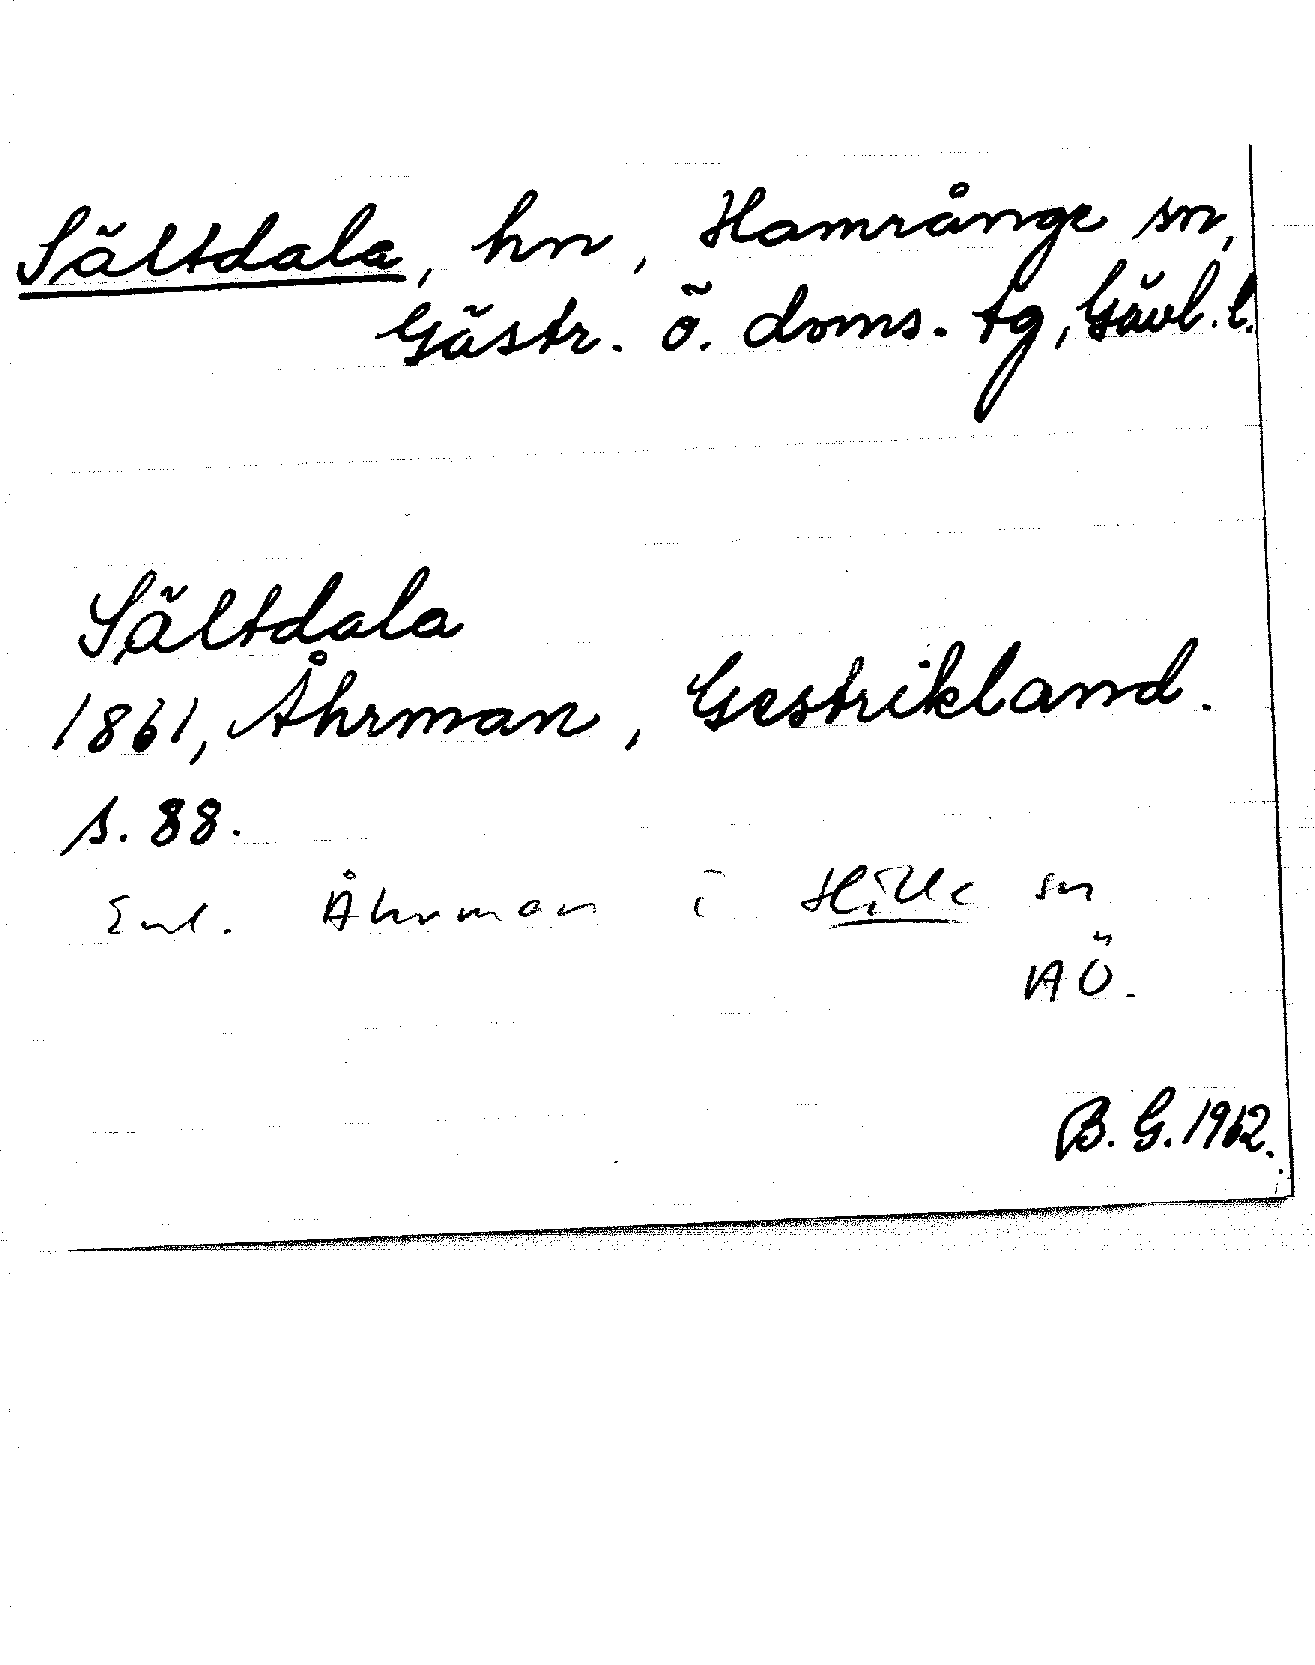 Sältdala, hn, Hamrånge sn,
Gästr. ö. doms. tg, Gävl. l.
Sältdala
1861, Åhrman, Gestrikland.
s. 88.
Enl. Åhrman i Hille sn
AÖ.
B. G. 1962.